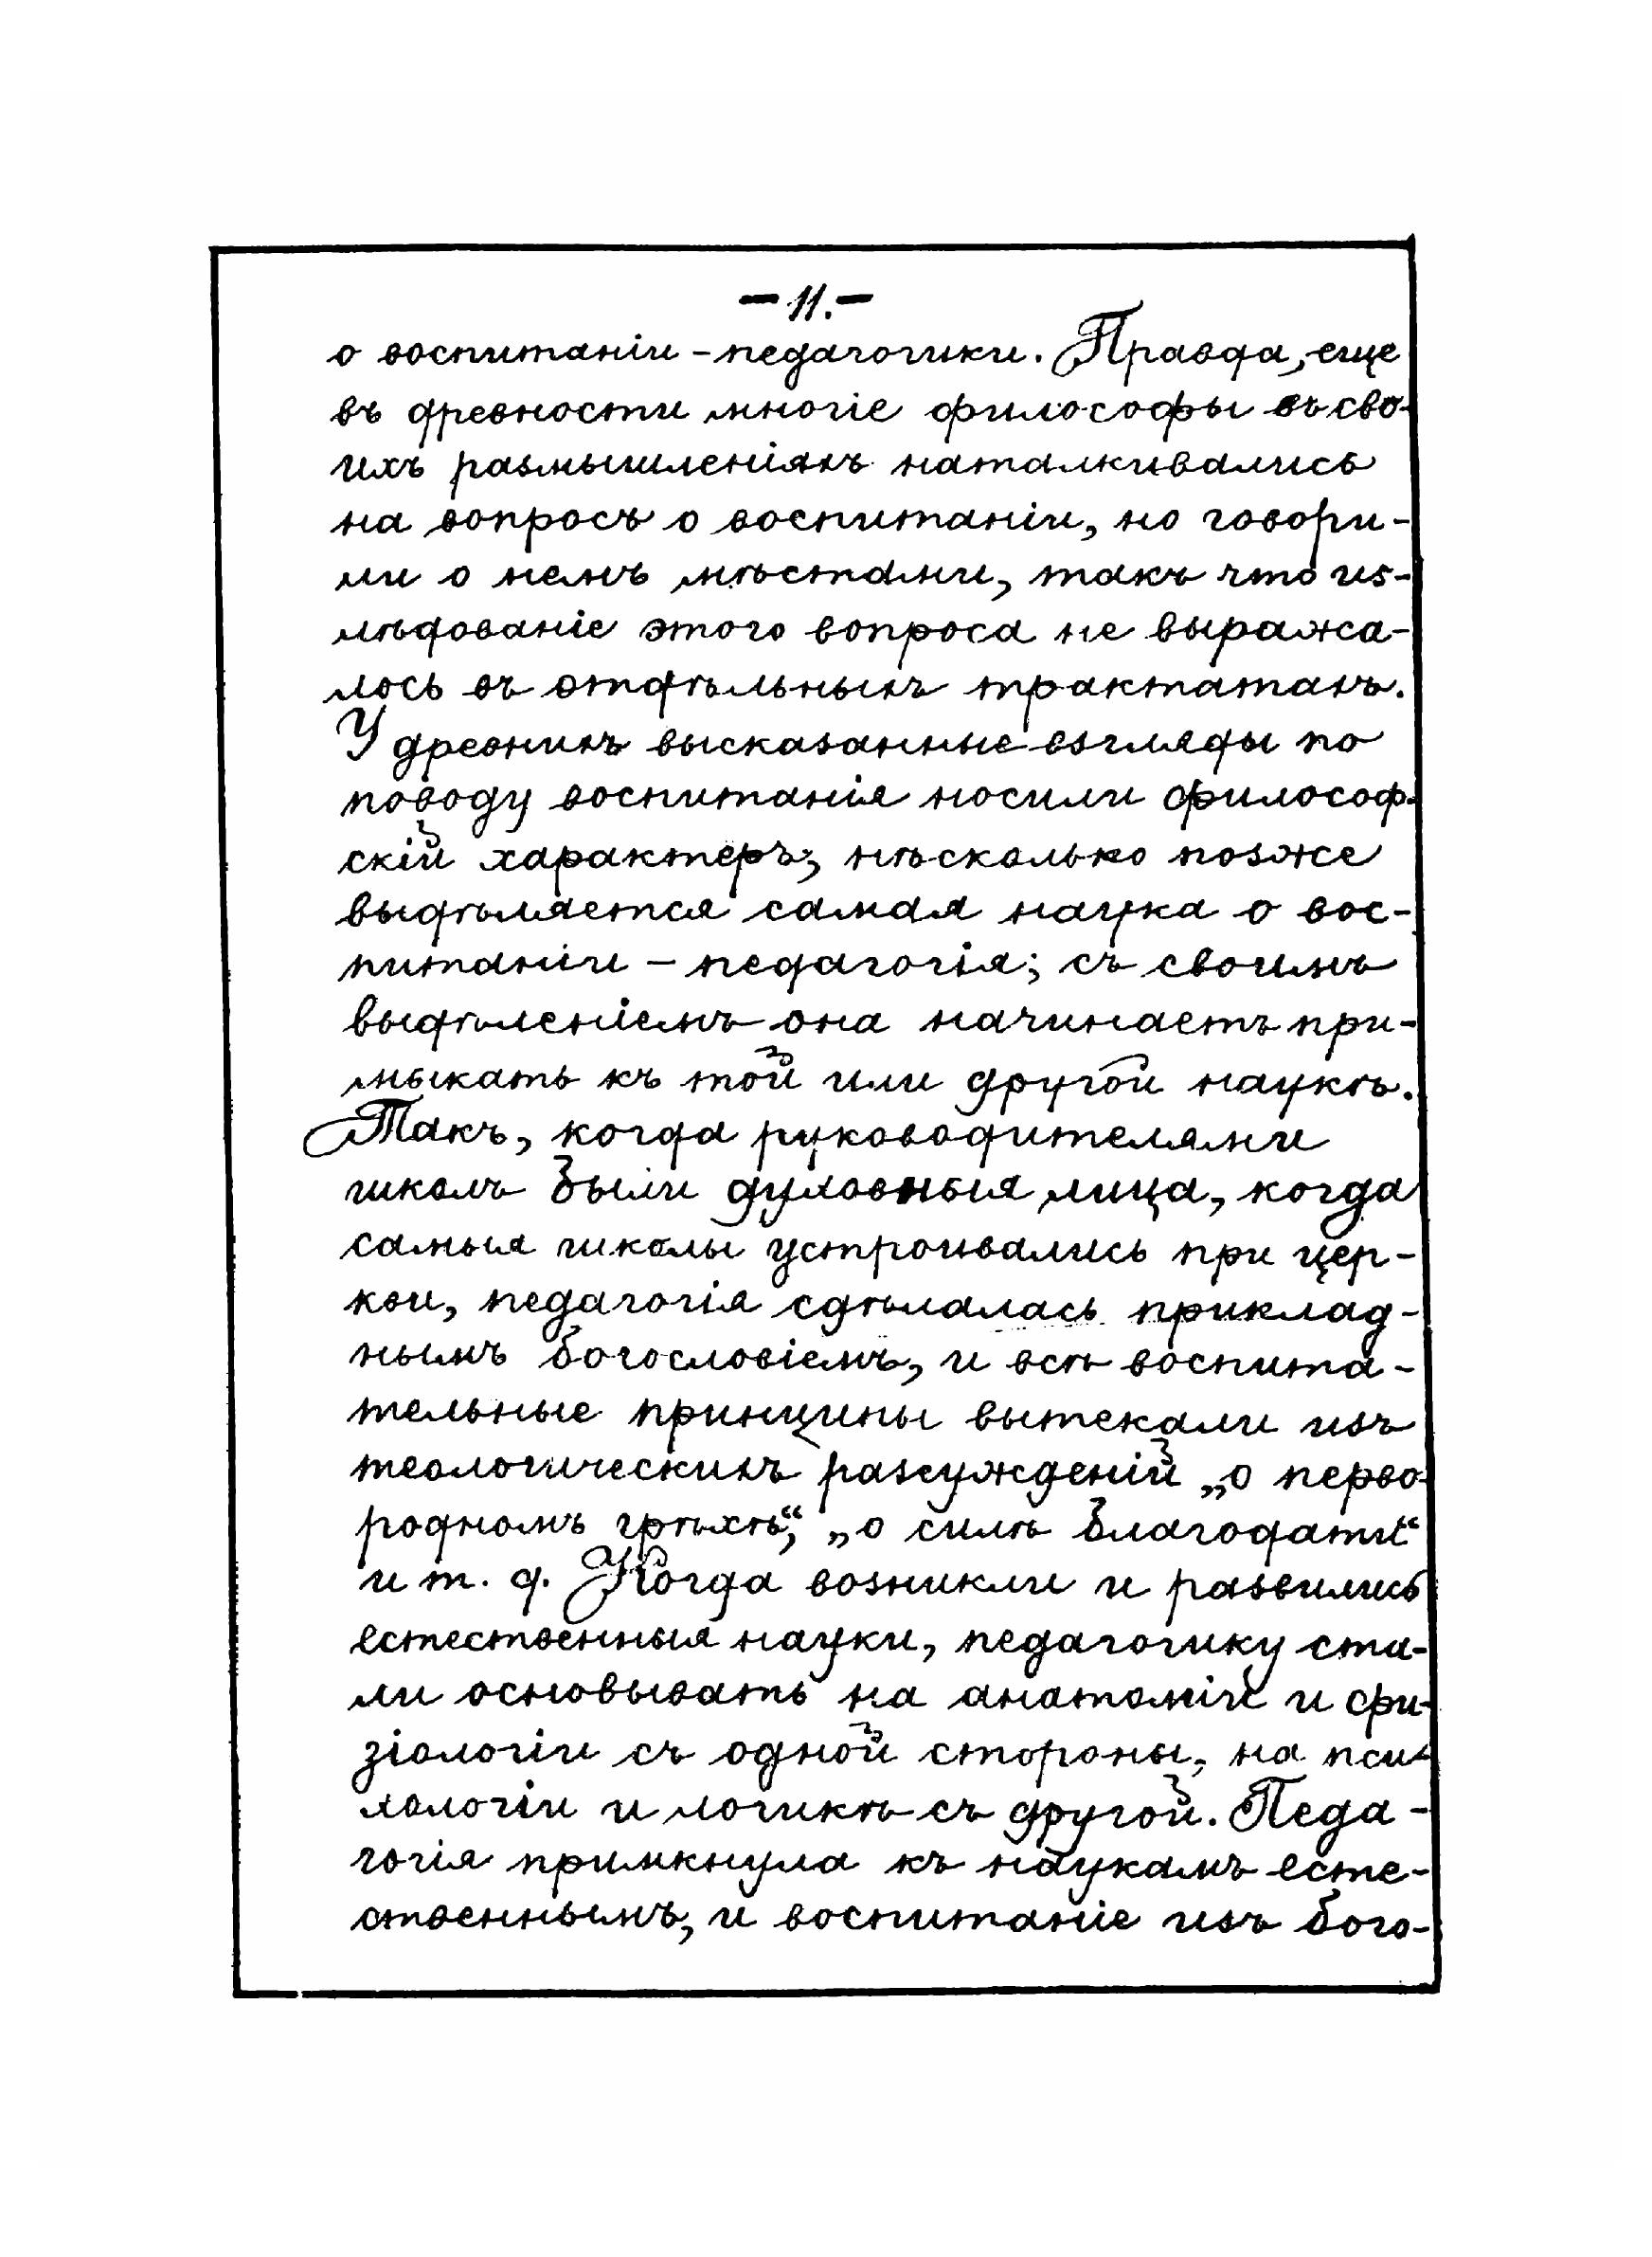 — 11. —
о воспитаніи – педагогики. Правда, еще
въ древности многіе философы въ сво-
ихъ размышленіяхъ наталкивались
на вопросъ о воспитаніи, но говори-
ли о немъ мѣстами, такъ что из-
лѣдованіе этого вопроса не выража-
лось въ отдѣльныхъ трактатахъ.
У древнихъ высказанные взгляды по
поводу воспитанія носили философ-
скій характеръ; нѣсколько позже
выдѣляется самая наука о вос-
питаніи – педагогія; съ своимъ
выдѣленіемъ она начинаетъ при-
мыкать къ той или другой наукѣ.
Такъ, когда руководителями
школъ были духовныя лица, когда
самыя школы устроивались при цер-
кви, педагогія сдѣлалась приклад-
нымъ богословіемъ, и всѣ воспита-
тельные принципы вытекали изъ
теологическихъ разсужденій „о перво-
родномъ грѣхѣ“, „о силѣ благодати“
и т. д. Когда возникли и развились
естественныя науки, педагогику ста-
ли основывать на анатоміи и фи-
зіологіи съ одной стороны, на пси-
хологіи и логикѣ съ другой. Педа-
гогія примкнула къ наукамъ есте-
ственнымъ, и воспитаніе изъ бого-